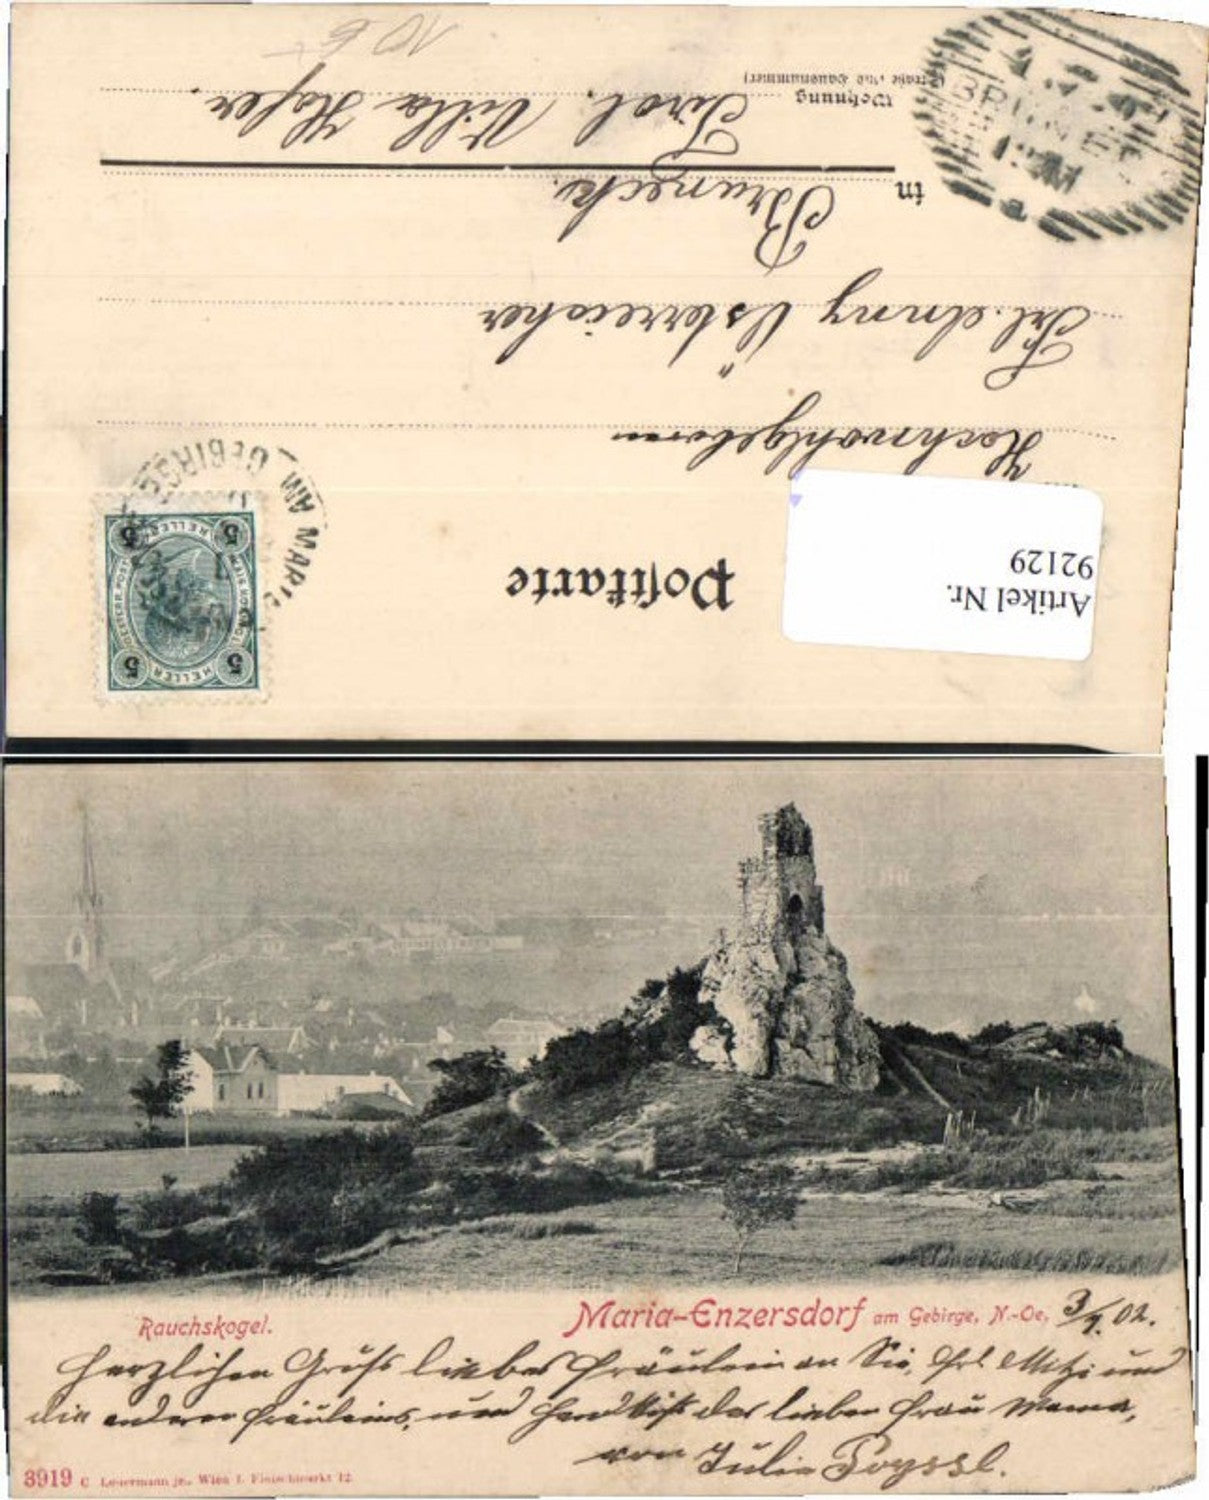 Postkarte
Artikel Nr.
92129
Hochwohlgeboren
Frl. Anny Österreicher
in Bruneck.
Wohnung Tirol. Villa Hofer.
(Straße und Hausnummer)
MARIA
AM GEBIRGE
5 HELLER 5
5 HELLER 5
BRUNECK
Rauchskogel.
Maria-Enzersdorf am Gebirge, N.-Oe, 3/7. 02.
Herzlichen Gruß liebes Fräulein an Sie, Frl Mitzi und
die anderen Fräuleins, und Handkuß der lieben Frau Mama,
von Julie Poyssl.
3919 C Ledermann jr., Wien I. Fleischmarkt 12.